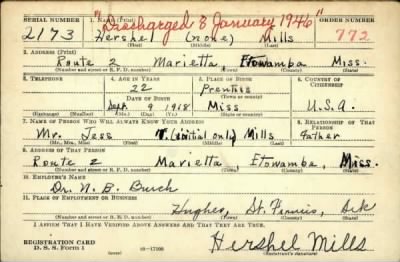 "Discharged 8 January 1946"
SERIAL NUMBER 1. NAME (Print) ORDER NUMBER
2173 Hershel (none) Mills 772
(First) (Middle) (Last)
2. ADDRESS (Print)
Route 2 Marietta, Itowamba Miss.
(Number and street or R. F. D. number) (Town) (County) (State)
3. TELEPHONE 4. AGE IN YEARS 5. PLACE OF BIRTH 6. COUNTRY OF CITIZENSHIP
22 Prentiss
DATE OF BIRTH (Town or county)
Sept 9 1918 Miss U.S.A.
(Mo.) (Day) (Yr.) (State or country)
7. NAME OF PERSON WHO WILL ALWAYS KNOW YOUR ADDRESS 8. RELATIONSHIP OF THAT PERSON
Mr. Jess T. (initial only) Mills Father
(Mr., Mrs., Miss) (First) (Middle) (Last)
9. ADDRESS OF THAT PERSON
Route 2 Marietta, Etowamba, Miss.
(Number and street or R. F. D. number) (Town) (County) (State)
10. EMPLOYER'S NAME
Dr. N. B. Burch
11. PLACE OF EMPLOYMENT OR BUSINESS
Hughes, St. Francis, Ark
(Number and street or R. F. D. number) (Town) (County) (State)
I AFFIRM THAT I HAVE VERIFIED ABOVE ANSWERS AND THAT THEY ARE TRUE.
REGISTRATION CARD
D. S. S. Form 1 16-17105 Hershel Mills
(Registrant's signature)